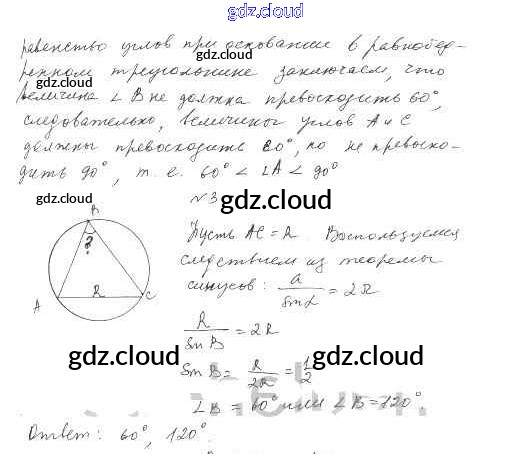 gdz.cloud
gdz.cloud
равенство углов при основании в равнобед-
ренном треугольнике заключаем, что
gdz.cloud gdz.cloud
величина ∠ B не должна превосходить 60°,
следовательно, величины углов A и C
должны превосходить 60°, но не превысхо-
gdz.cloud gdz.cloud
дить 90°, т. е. 60° < ∠A < 90°
gdz.cloud gdz.cloud
№ 3
B
?
A R C
Пусть AC = R. Воспользуемся
следствием из теоремы
синусов: a / sin α = 2R
gdz.cloud
R / sin B = 2R
gdz.cloud gdz.cloud
sin B = R / 2R = 1/2
∠B = 60° или ∠B = 120°.
Ответ: 60°, 120°.
gdz.cloud gdz.cloud